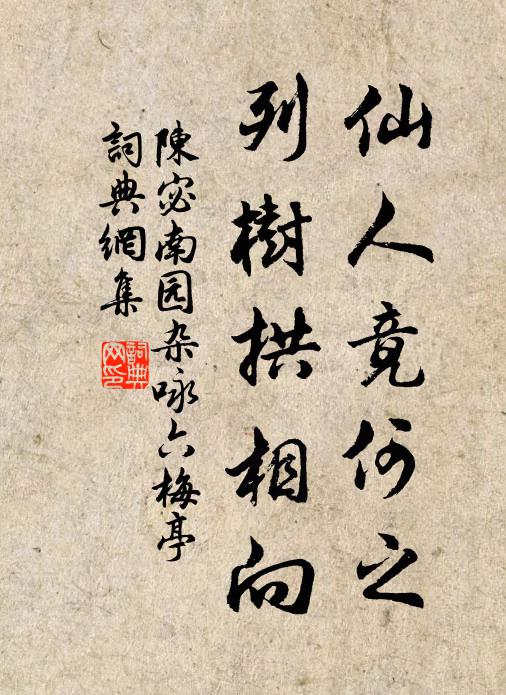 仙人竟何之
列樹拱相向
陳宓南园杂咏六梅亭
詞典網集
詞典网印